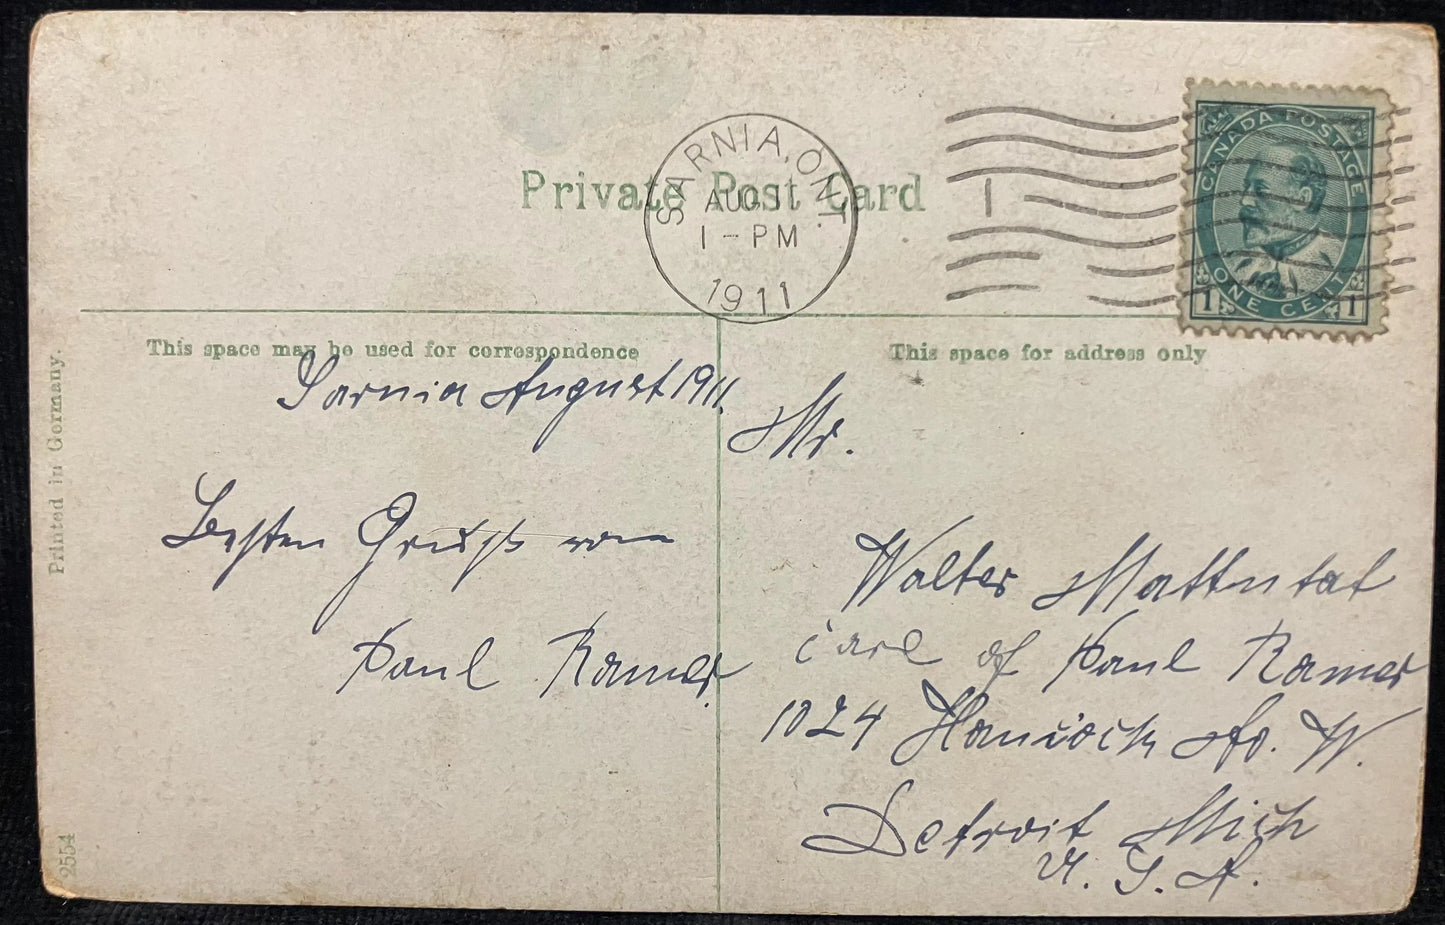 Private Post Card
SARNIA, ONT.
AUG 1
1 - PM
1911
CANADA POSTAGE
1 ONE CENT 1
This space may be used for correspondence
Sarnia August 1911.
Besten Gruß von
Paul Ramer.
This space for address only
Mr.
Walter
care of Paul Ramer
1024 Hancock W.
Detroit Mich
U. S. A.
Printed in Germany.
2554